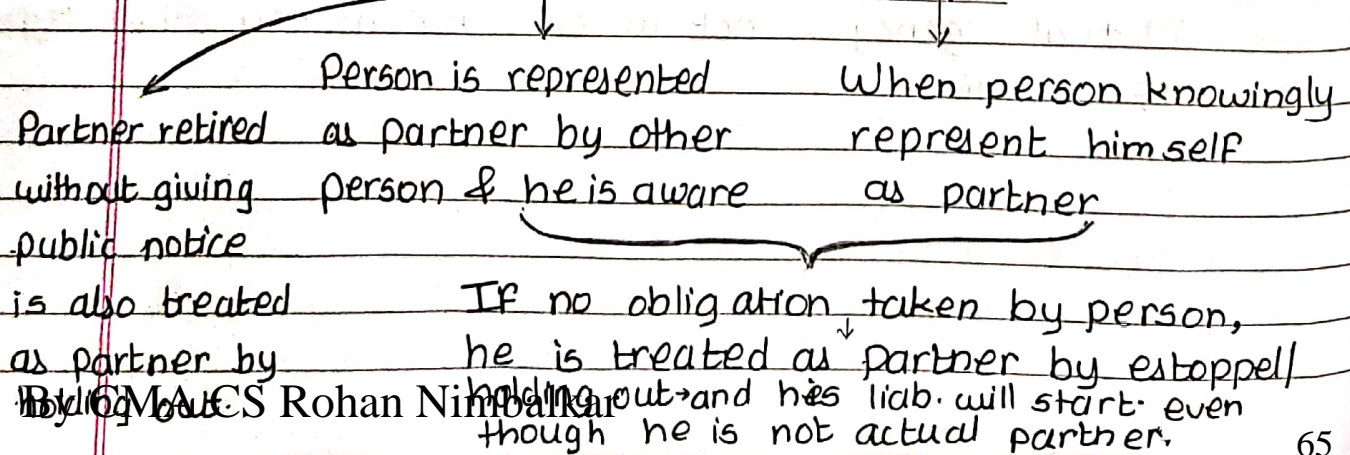 Partner retired
without giving
public notice
is also treated
as partner by
holding out
Person is represented
as partner by other
person & he is aware
When person knowingly
represent himself
as partner
If no obligation taken by person,
he is treated as partner by estoppel/
holding out→and his liab. will start even
though he is not actual partner.
By CMA CS Rohan Nimbalkar
65